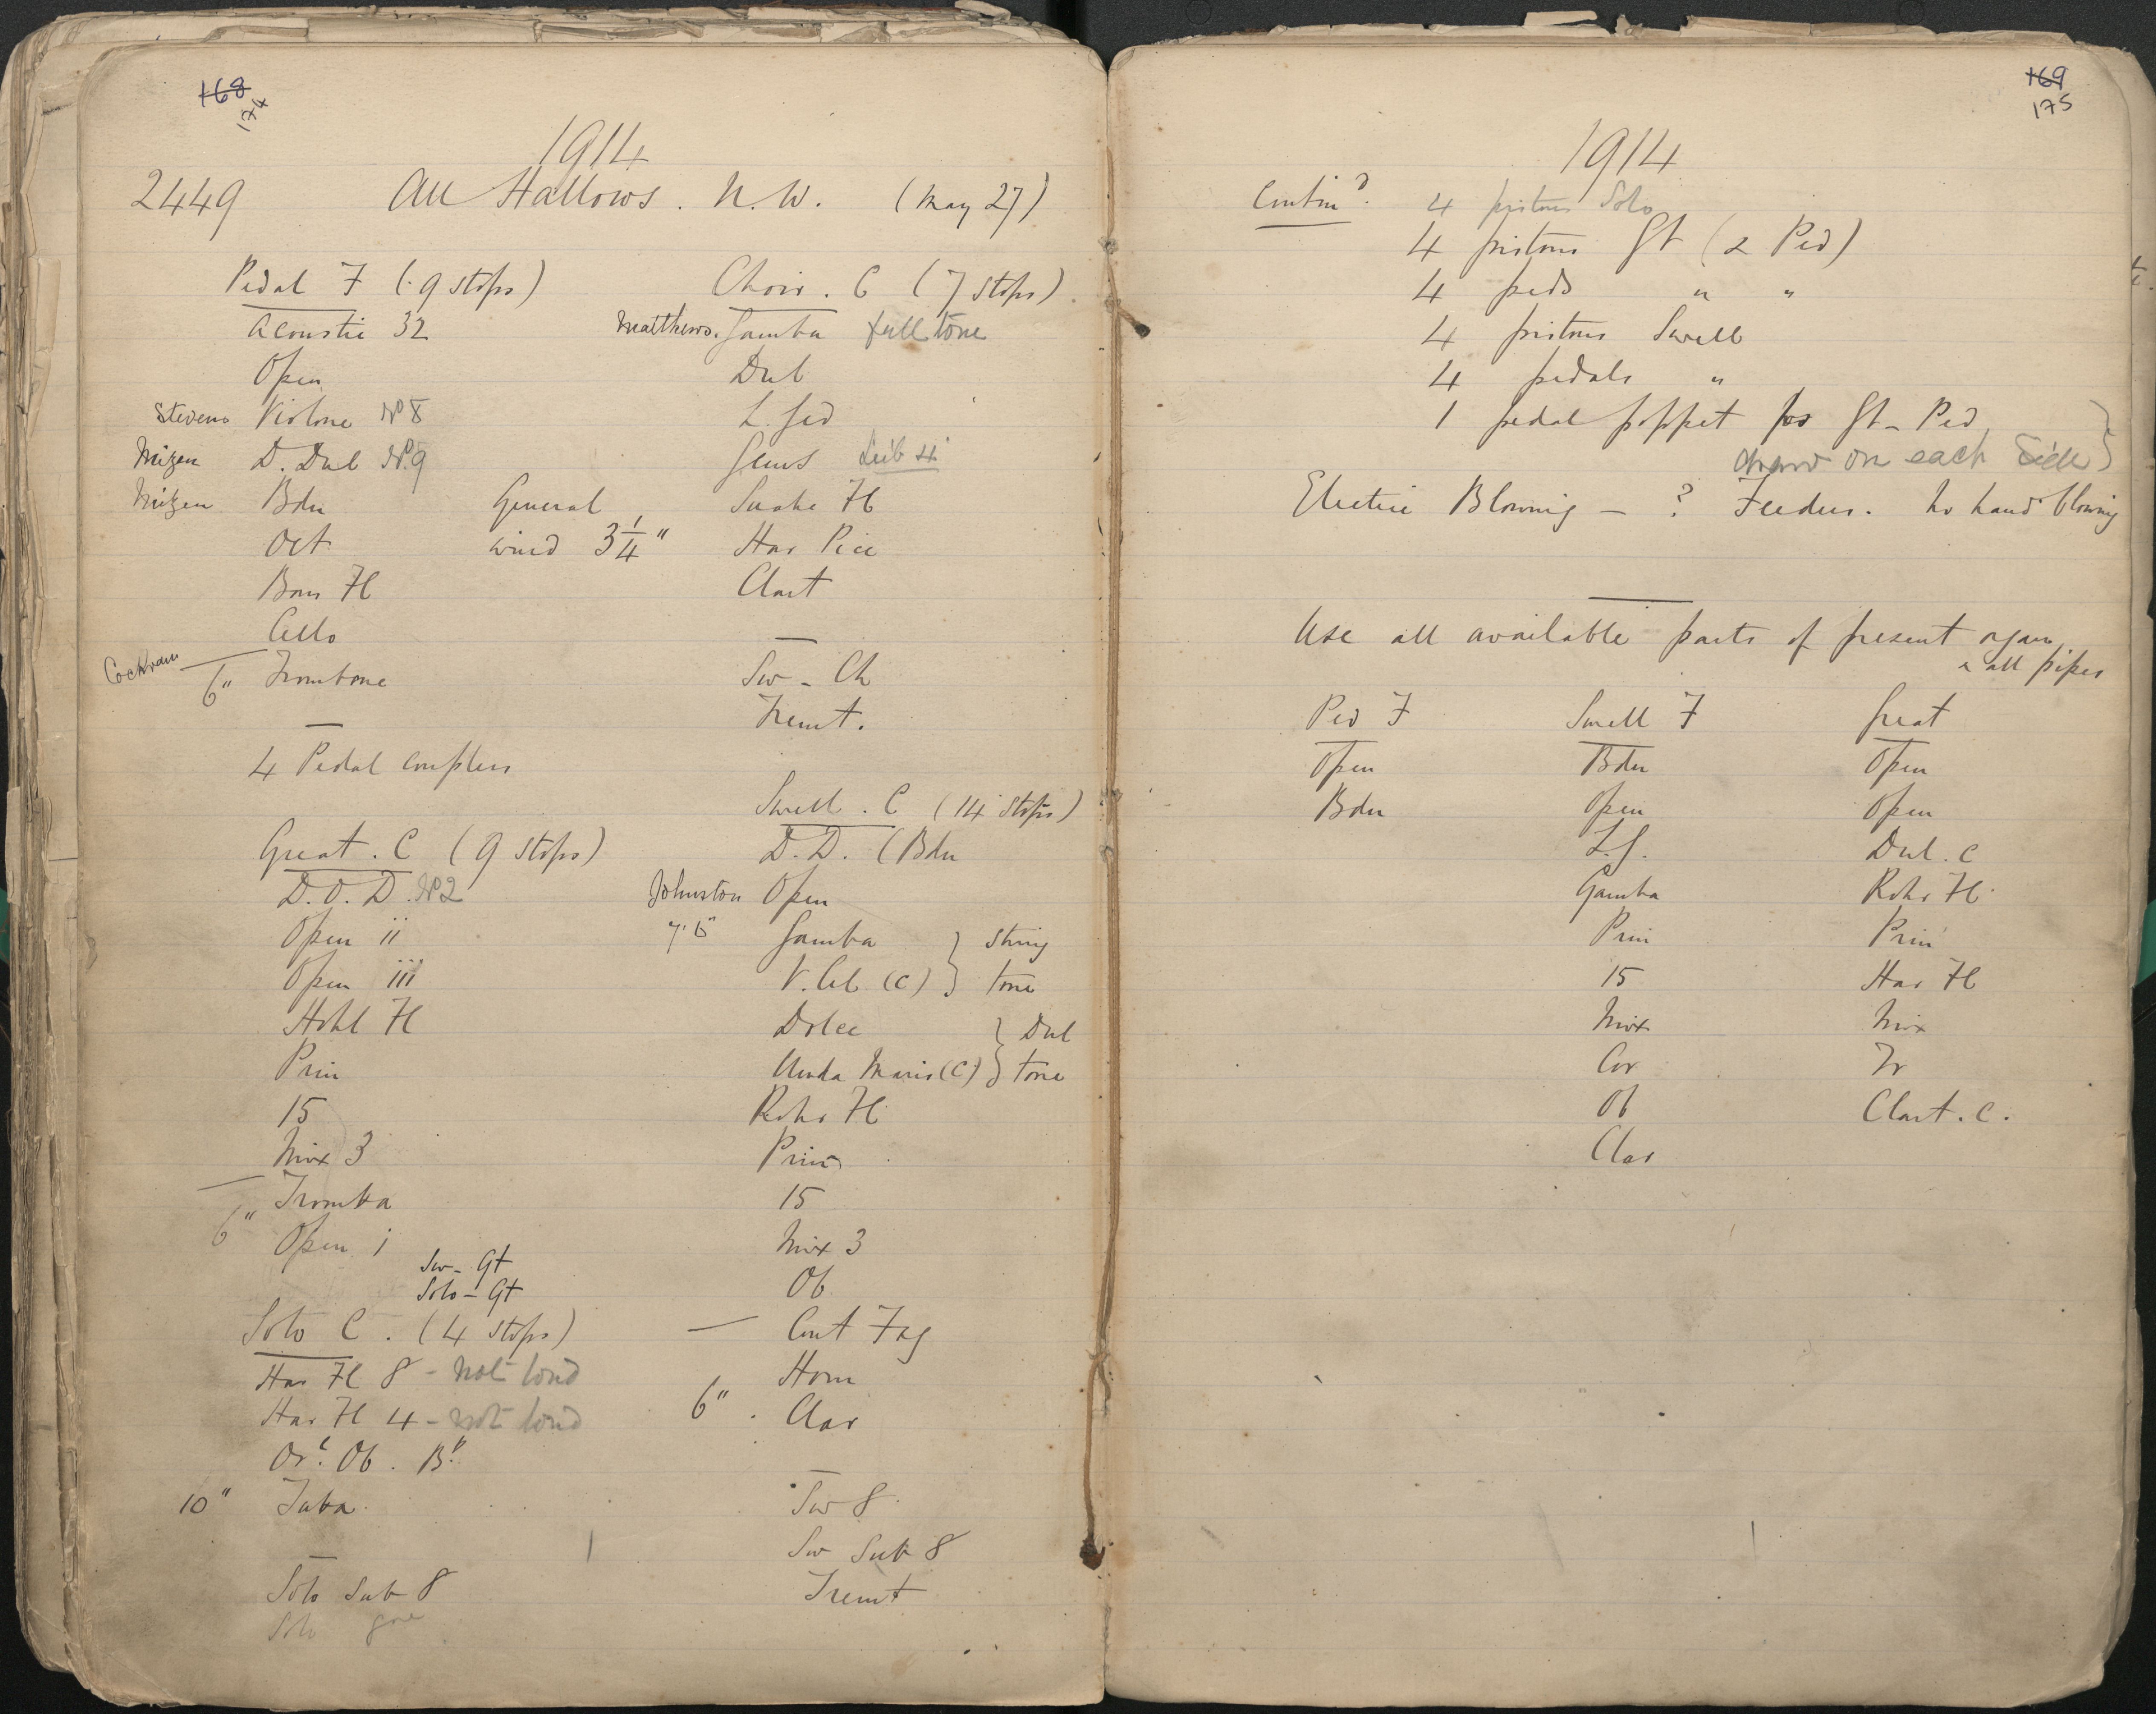 168
174
1914
2449 All Hallows. N.W. (May 27)
Pedal F (9 stops)
Acoustic 32
Open
Stevens Violone No 8
Mizen D. Dul No 9
Mizen Bdn
Oct
Bass Fl
Cello
Cochram 6" Trombone
4 Pedal couplers
General
wind 3 1/4"
Great. C (9 stops)
D. O. D. No 2
Open ii
Open iii
Hohl Fl
Prin
15
Mix 3
Tromba
6"
Open i
Sw - Gt
Solo - Gt
Solo C. (4 stops)
Har Fl 8 - not loud
Har Fl 4 - not loud
Orl Ob. Bn
10" Tuba
Solo Sub 8
Solo
Choir. C (7 stops)
Matthews. Gamba full tone
Dul
L. Ged
Gems Leib 4'
Suabe Fl
Har Picc
Clart
Sw - Ch
Tremt.
Swell. C (14 stops)
D. D. (Bdn
Johnston Open
Gamba } string
V. Cel. (C) } tone
Dolce } Dul
Unda Maris (C) } tone
Rohr Fl
Prin
15
Mix 3
Ob
Cont Fag
Horn
6" Clar
Sw 8
Sw Sub 8
Tremt
169
175
1914
Contind. 4 pistons Solo
4 pistons Gt (& Ped)
4 peds " "
4 pistons Swell
4 pedals "
1 pedal poppet for Gt - Ped }
draw on each side }
Electric Blowing - ? Feeders. No hand blowing
Use all available parts of present organ
& all pipes
Ped F
Open
Bdn
Swell F
Bdn
Open
L. G.
Gamba
Prin
15
Mix
Cor
Ob
Clar
Great
Open
Open
Dul. C
Rohr Fl
Prin
Har Fl
Mix
Tr
Clart. C.